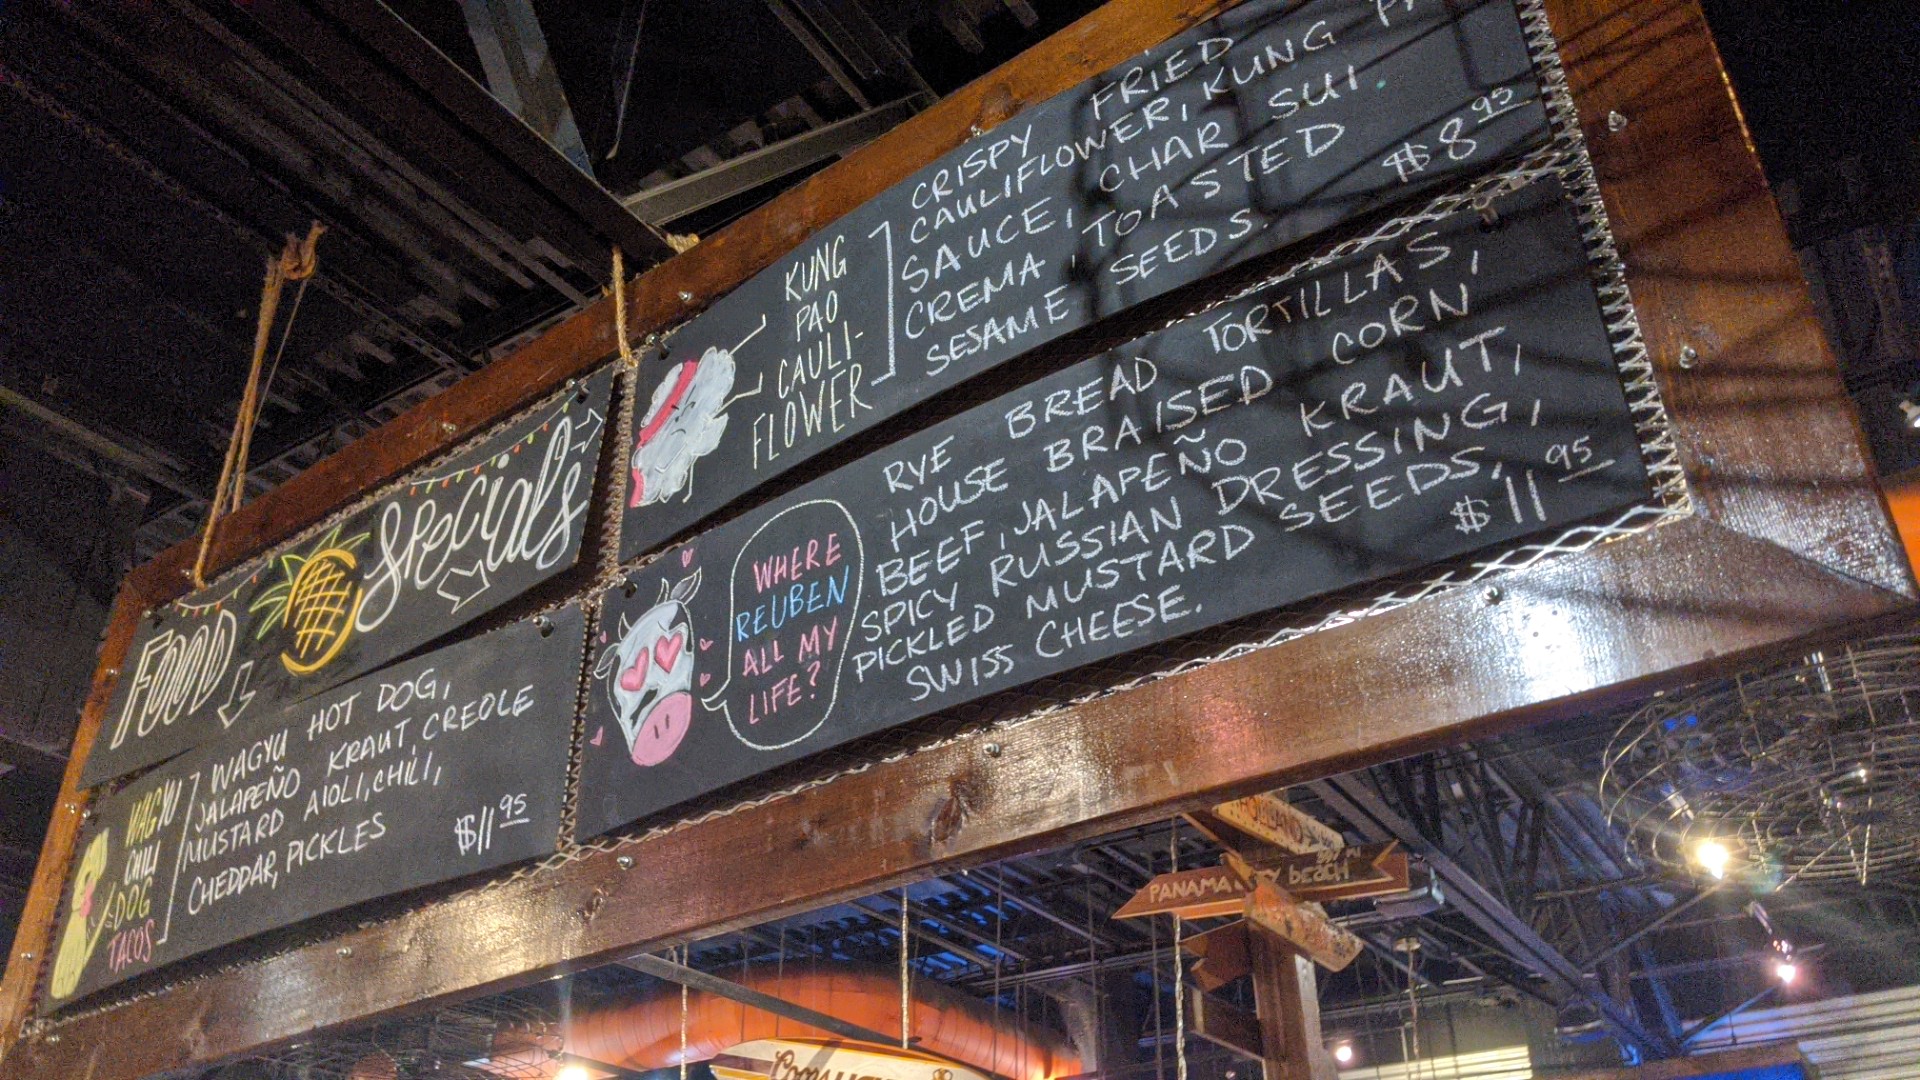 FOOD Specials
WAGYU
CHILI
DOG
TACOS
WAGYU HOT DOG,
JALAPEÑO KRAUT, CREOLE
MUSTARD AIOLI, CHILI,
CHEDDAR, PICKLES
$11 95
KUNG
PAO
CAULI-
FLOWER
CRISPY FRIED
CAULIFLOWER, KUNG
SAUCE, CHAR SUI
CREMA, TOASTED
SESAME SEEDS.
$8 95
WHERE
REUBEN
ALL MY
LIFE?
RYE BREAD TORTILLAS,
HOUSE BRAISED CORN
BEEF, JALAPEÑO KRAUT,
SPICY RUSSIAN DRESSING,
PICKLED MUSTARD SEEDS,
SWISS CHEESE.
$11 95
PANAMA CITY BEACH